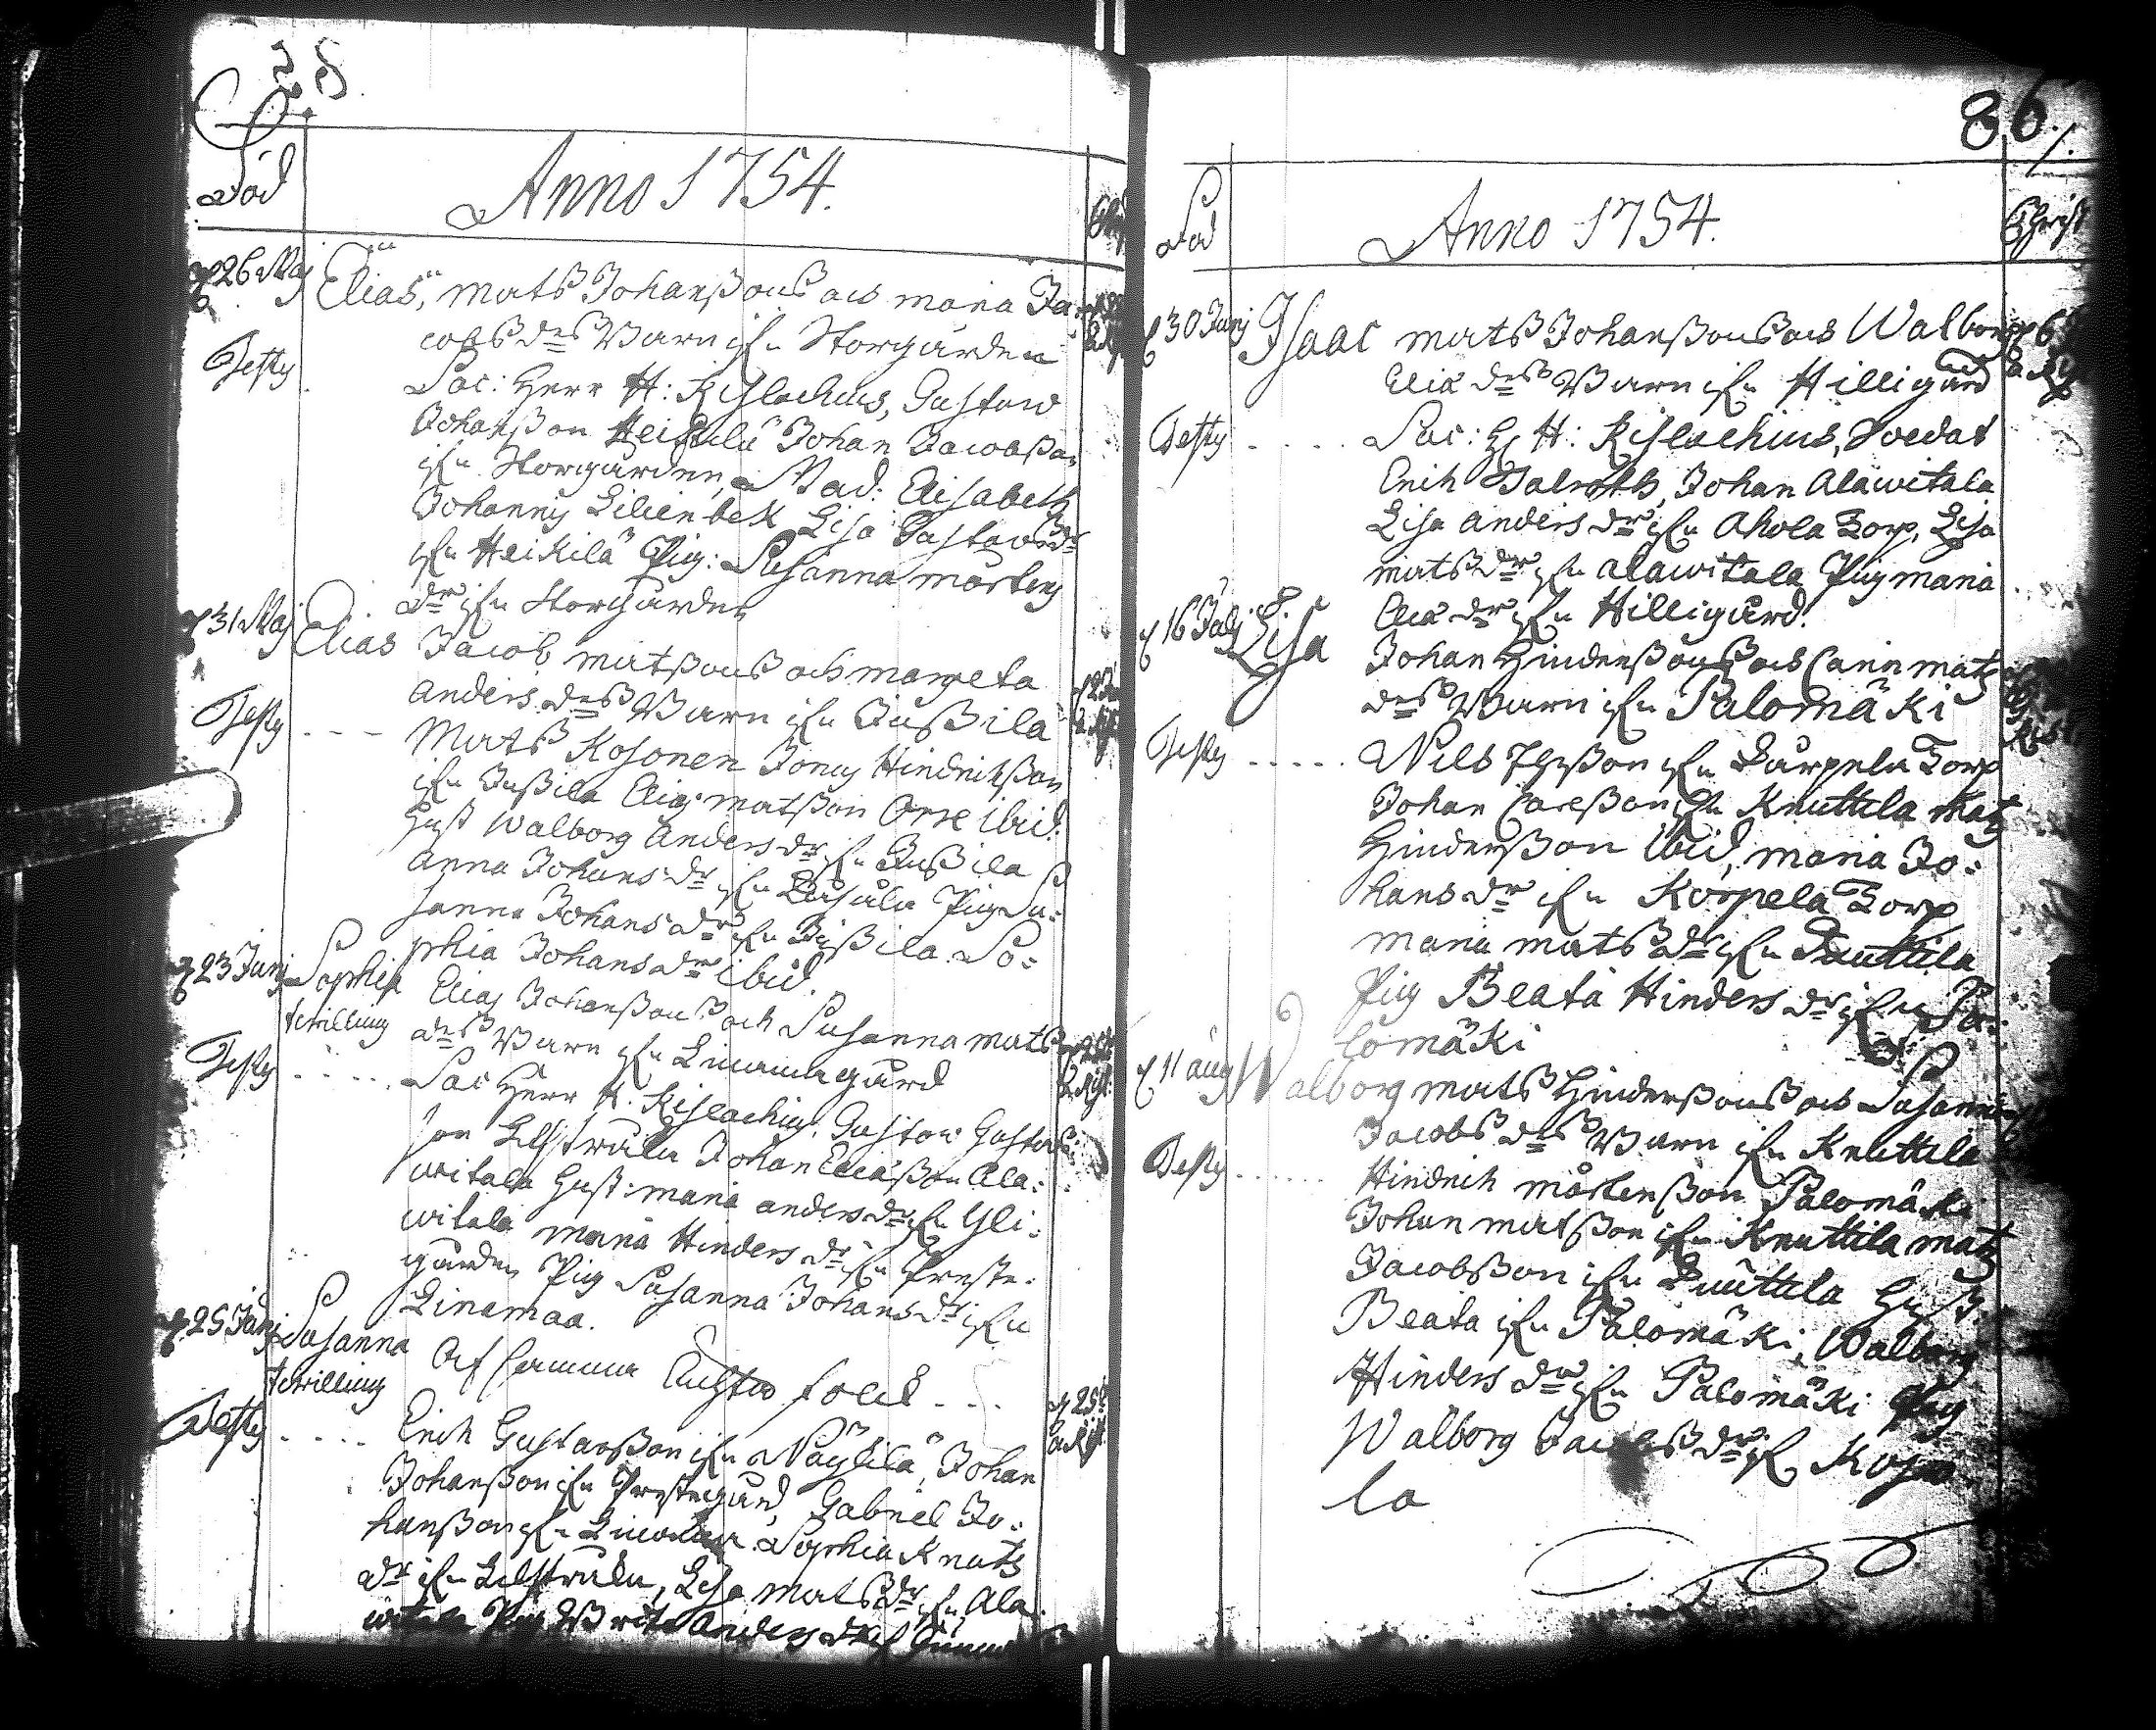 Föd
Anno 1754.
26 Maj Elias, Mats Johanßons och Maria Ja-
cobs drs Barn ifrn Storgården
Testes Sac: Herr H: Kislachius, Gustaw
Johanßon Heikilä Johan Jacobßon
ifrn Storgården, Mad: Elisabeth
Johannis Lilienbek Lisa Gustavs dr
ifrn Heikilä Pig: Susanna Mårtens
dr ifrn Storgården
31 Maj Elias Jacob Matßons och Margeta
Anders drs Barn ifrn Jußila
Testes - - - Mats Kosonen Jonas Hindrikßon
ifrn Jußila Elias Matßon Orre ibid:
Hust Walborg Anders dr ifrn Jußila
Anna Johans dr ifrn Pig Su-
sanna Johans dr ifrn Jußila So-
phia Johans dr ibid.
23 Junj Sophia Elias Johanßons och Susanna Mats
twilling drs Barn ifrn Linamaagård
Testes .... Sac Herr H. Kislachius, Gustaw Gustafs
son Johan Eliaßon Ala-
witala Hust: Maria Anders dr ifrn Yli-
witala Maria Hinders dr ifrn Preste-
gården Pig Susanna Johans dr ifrn
Linamaa.
25 Junj Susanna Af samma Ächta folck - - -
twilling
Testes .... Erich Gustavßon ifrn Näyhilä, Johan
Johanßon ifrn Prestegård, Gabriel Jo-
hanßon ifrn Sophia Knuts
dr ifrn Lisa Mats dr ifrn Ala-
witala Pig Brita Anders dr
86.
Föd
Anno 1754.
Christ
30 Junj Isaac Mats Johanßons och Walborg
Eliæ drs Barn ifrn Hilligård
Testes .... Sac: H H: Kislachius, Soldat
Erich Johan Alawitala
Lisa Anders dr ifrn Ahola Torp, Lisa
Mats dr ifrn Alawitala Pig Maria
Eliæ dr ifrn Hilligård.
16 Julj Lisa Johan Hinderßons och Carin Mats
drs Barn ifrn Palomäki
Testes ..... Nils ifrn Torp
Johan Carlßon ifrn Knuttila Mats
Hinderßon ibid, Maria Jo-
hans dr ifrn Korpela Torp
Maria Mats dr ifrn
Pig Beata Hinders dr ifrn Pa-
lomäki
11 Aug Walborg Mats Hinderßons och Susanna
Jacobs drs Barn ifrn Knuttila
Testes ...... Hindrich Mårtenßon Palomäki
Johan Matßon ifrn Knuttila Mats
Jacobßon ifrn Hust:
Beata ifrn Palomäki, Walborg
Hinders dr ifrn Palomäki Pig
Walborg Jacobs dr ifr
la